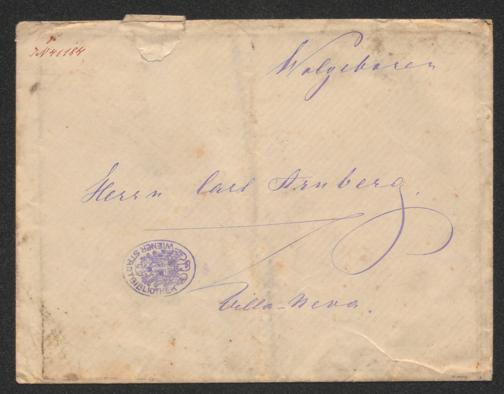 Wolgeboren
Herrn Carl Arnberg.
Villa-Neva.
WIENER STADTBIBLIOTHEK